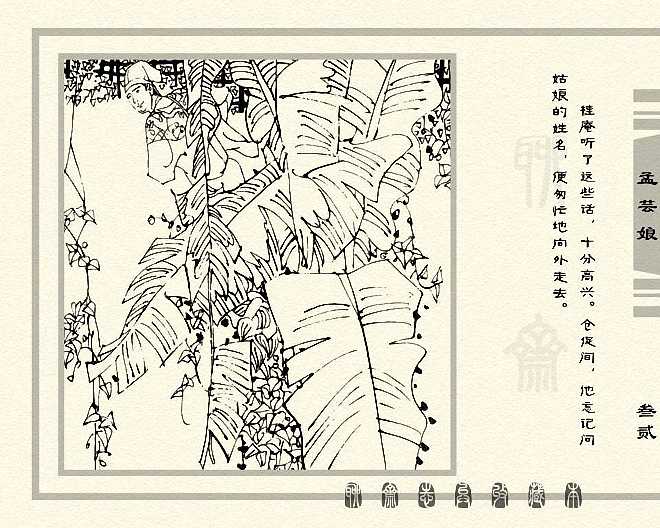 桂庵听了这些话，十分高兴。仓促间，他忘记问
姑娘的姓名，便匆忙地向外走去。
孟芸娘
叁贰